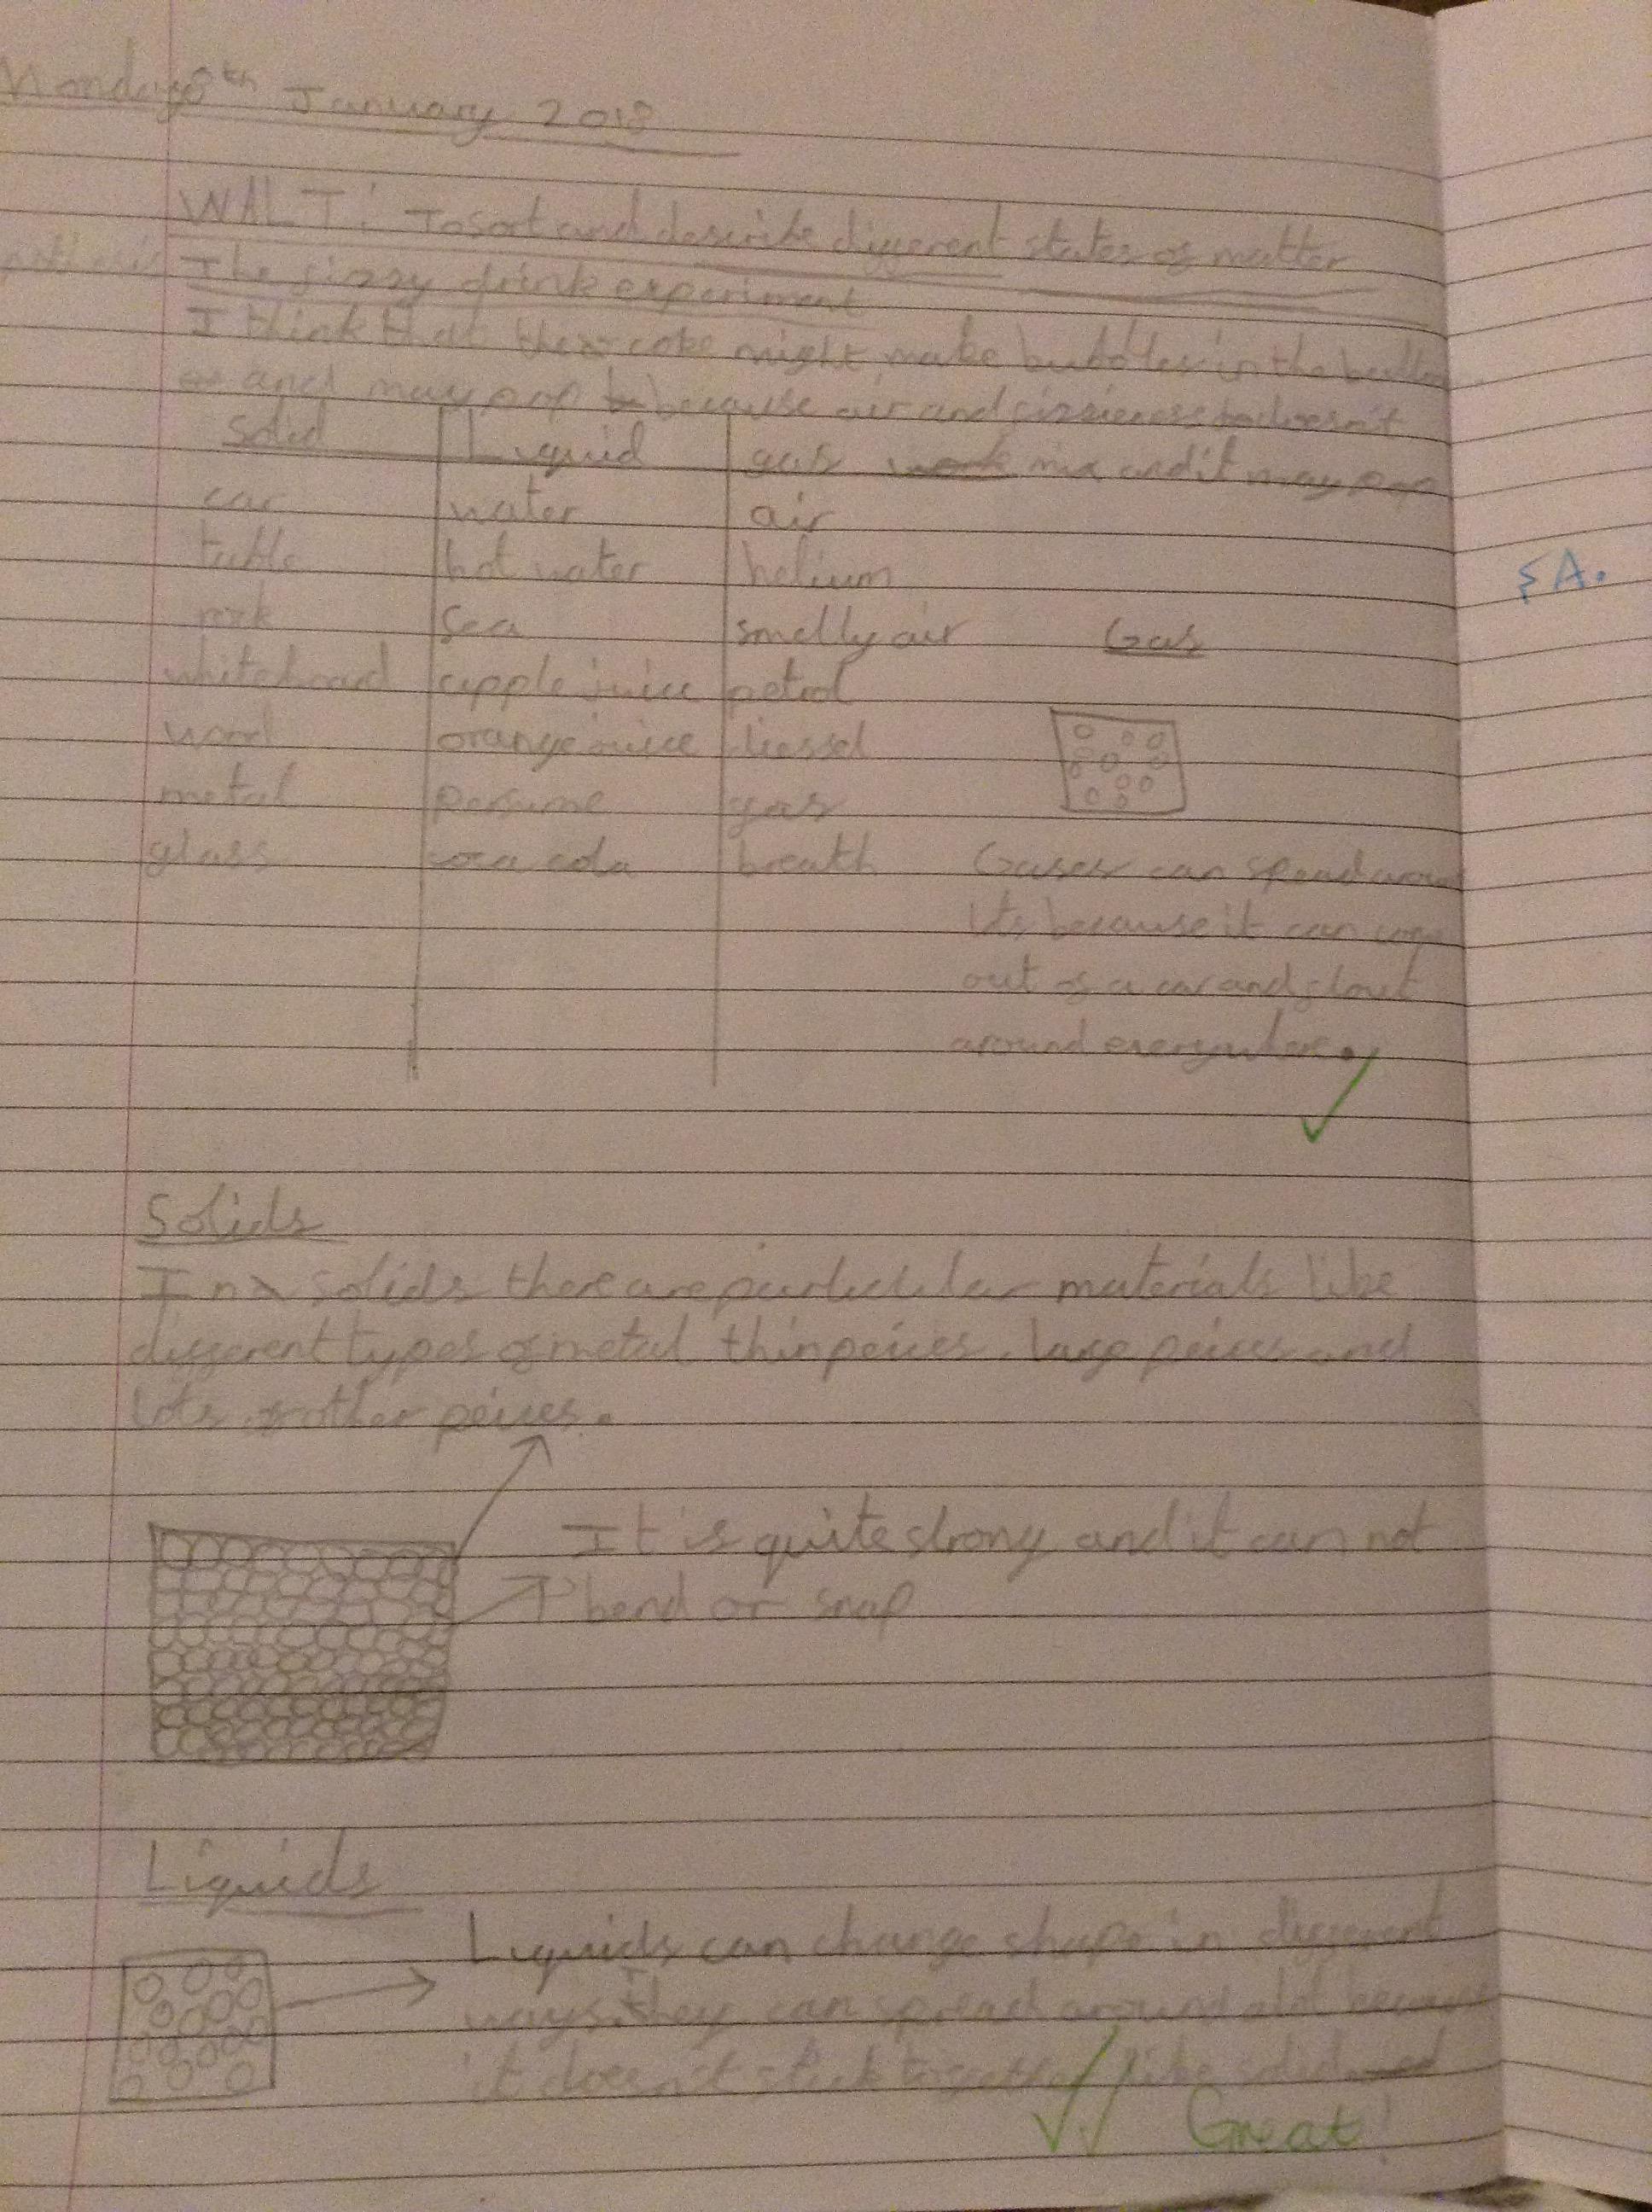 Monday 8th January 2018
WALT: To sort and describe different states of matter
The fizzy drink experiment
I think that the coke might make bubbles in the
and may pop because air and doesn't
mix and it may pop
Solid Liquid gas
car water air
table hot water helium
sea smelly air
whiteboard apple juice petrol
wood orange juice diessel
metal perfume gas
glass coca cola breath
§A.
Gas
Gases can spead
lots because it can
out of a car and float
around everywhere.
Solids
In solids there are particular materials like
different types of metal thin peices, large peices and
lots of other peices.
It is quite strong and it can not
bend or snap
Liquids
Liquids can change shape in different
ways. They can spread around alot because
it doesn't stick together like solid
Great!